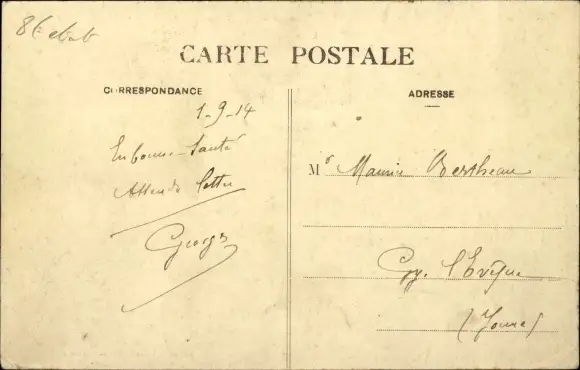 CARTE POSTALE
CORRESPONDANCE
ADRESSE
1-9-14
En bonne santé
Attends lettre
Georges
M
Maurice Bertheau
l'Evêque
(Yonne)